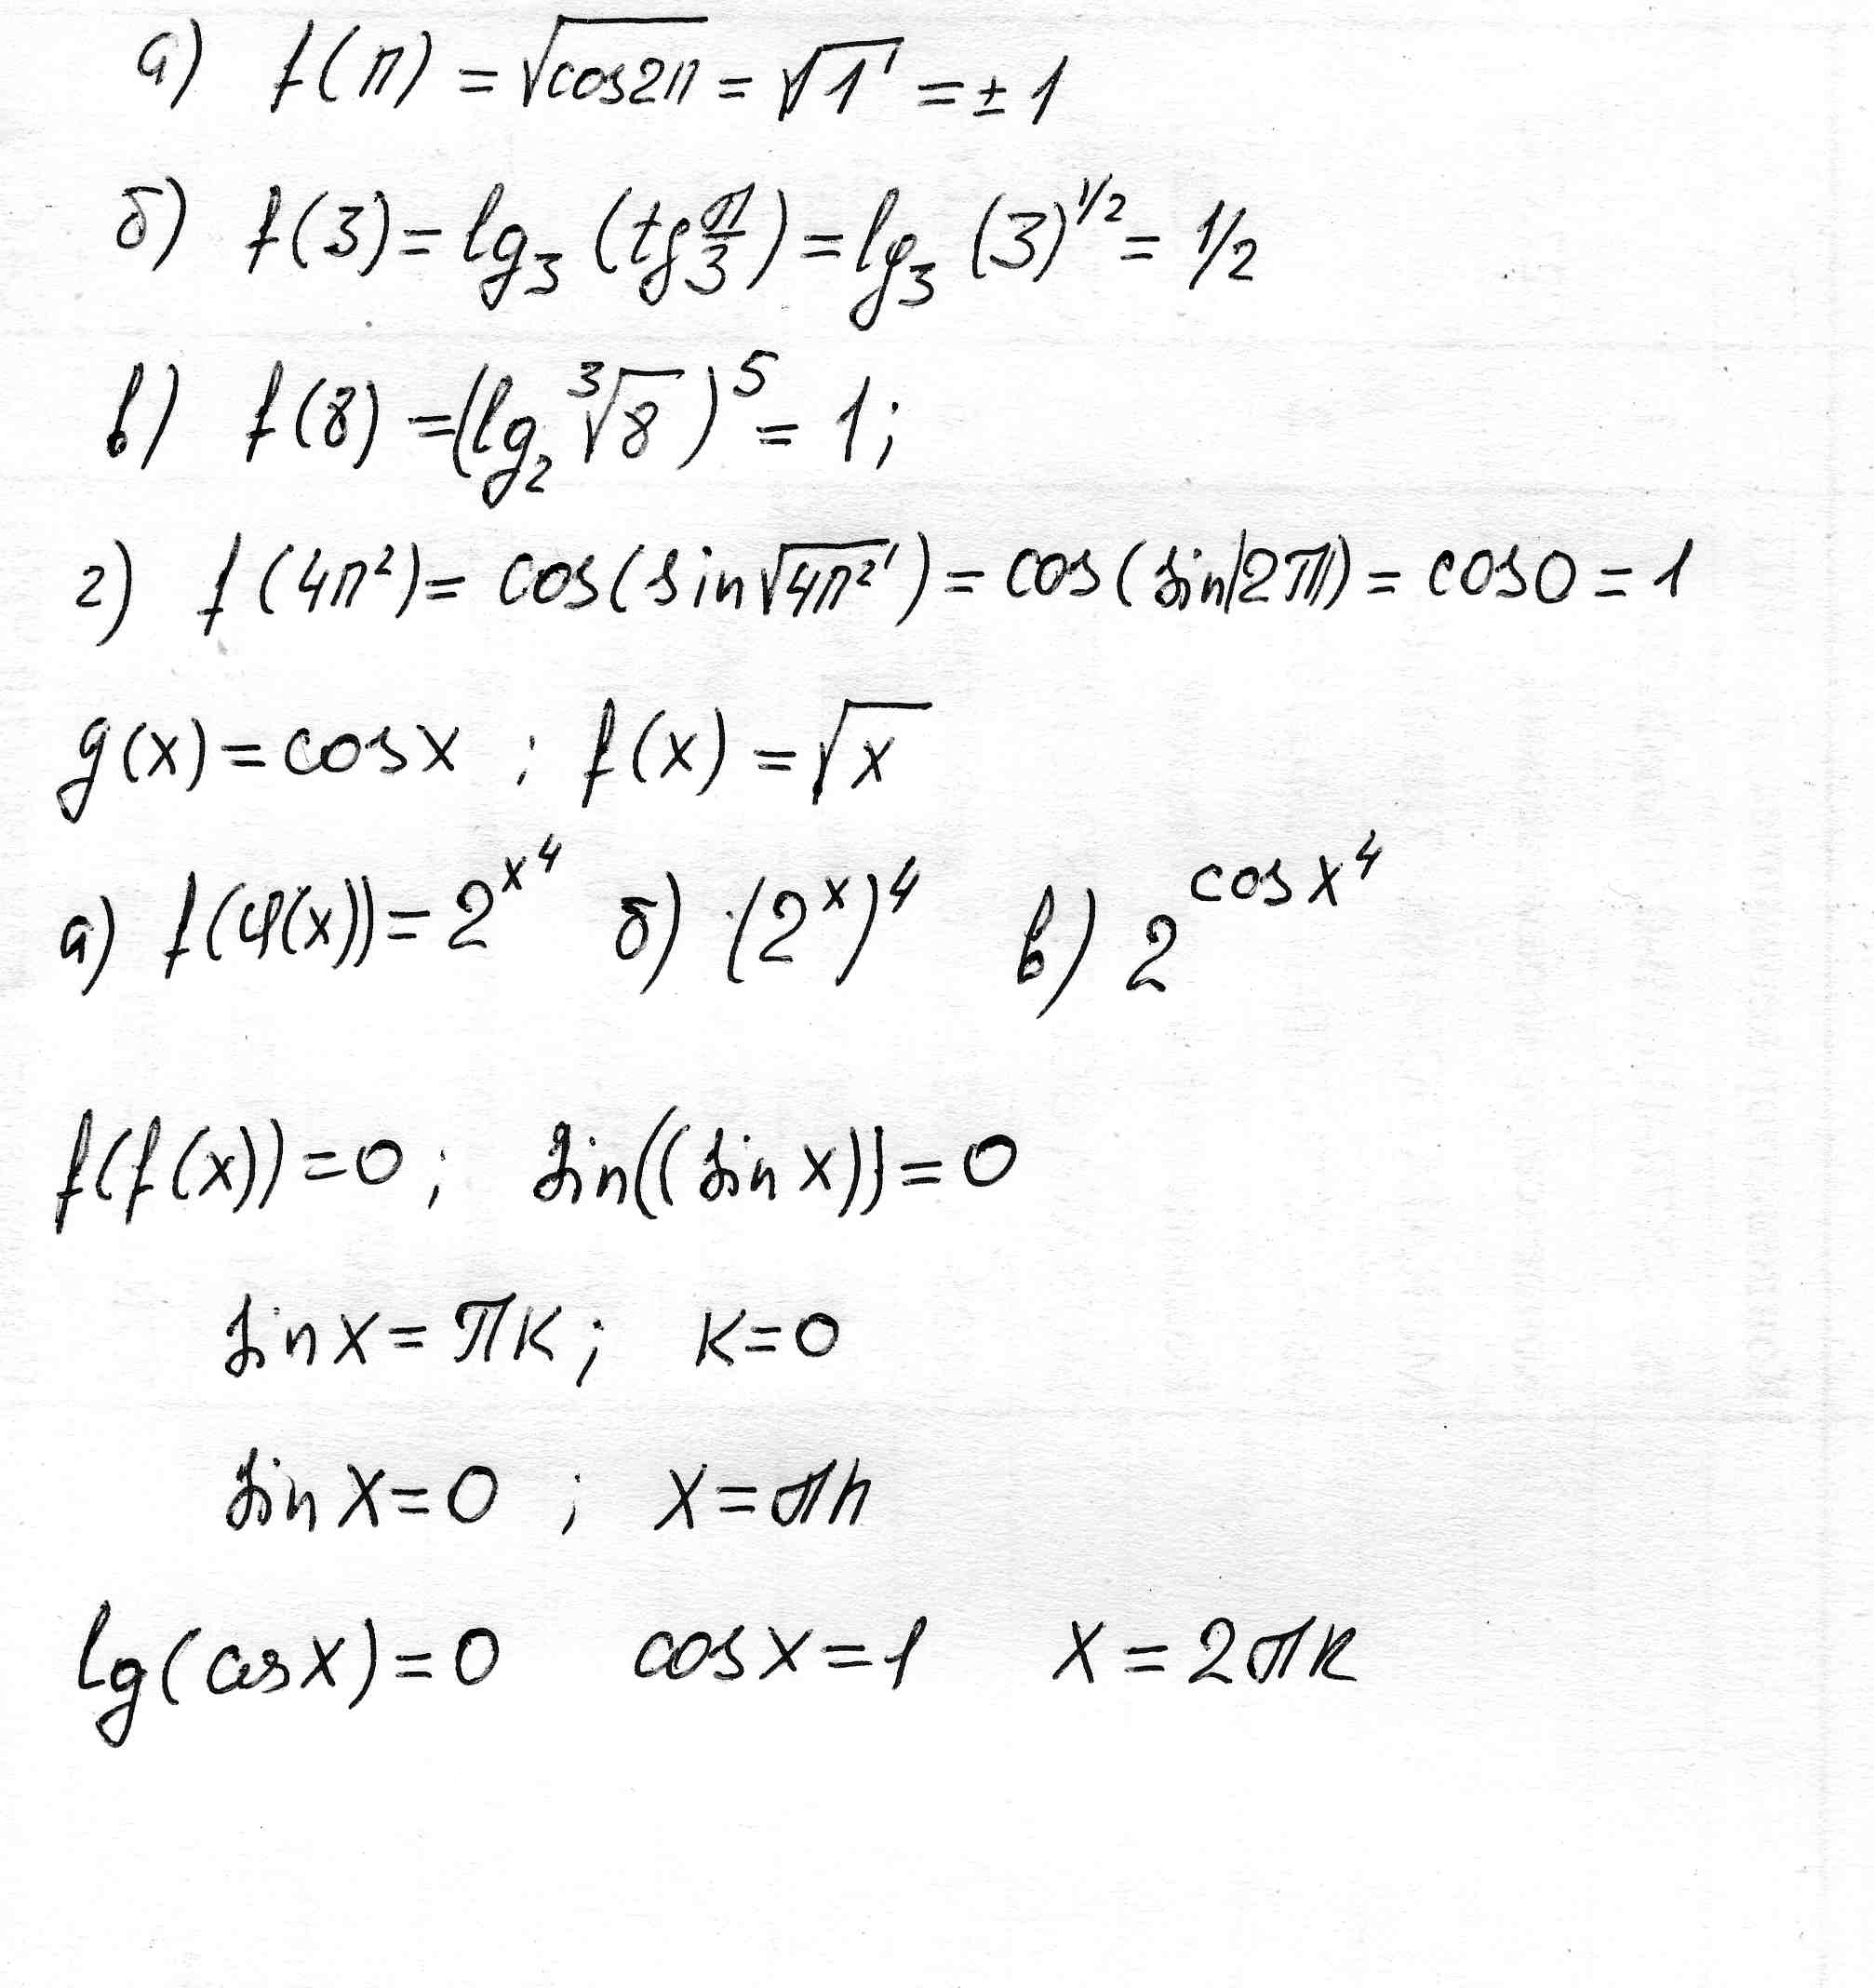 а) f(π) = √cos2π = √1 = ± 1
б) f(3) = lg₃ (tg π/3) = lg₃ (3)^1/2 = 1/2
в) f(8) = (lg₂ ∛8)⁵ = 1;
г) f(4π²) = cos(sin√4π²) = cos(sin|2π|) = cos0 = 1
g(x) = cosx ; f(x) = √x
а) f(φ(x)) = 2^x⁴ б) (2^x)⁴ в) 2^cosx⁴
f(f(x)) = 0 ; sin((sin x)) = 0
sin x = πk ; k = 0
sin x = 0 ; x = πn
lg(cosx) = 0 cosx = 1 x = 2πk